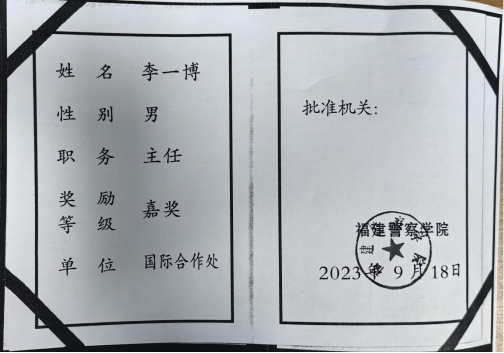 姓名 李一博
性别 男
职务 主任
奖励等级 嘉奖
单位 国际合作处
批准机关：
福建警察学院
2023年9月18日